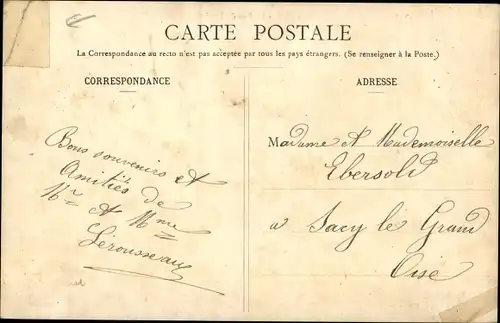 CARTE POSTALE
La Correspondance au recto n'est pas acceptée par tous les pays étrangers. (Se renseigner à la Poste.)
CORRESPONDANCE
Bons souvenirs et
Amitiés de
Mr et Mme
Lérousseau
ADRESSE
Madame et Mademoiselle
Ebersold
a Sacy le Grand
Oise